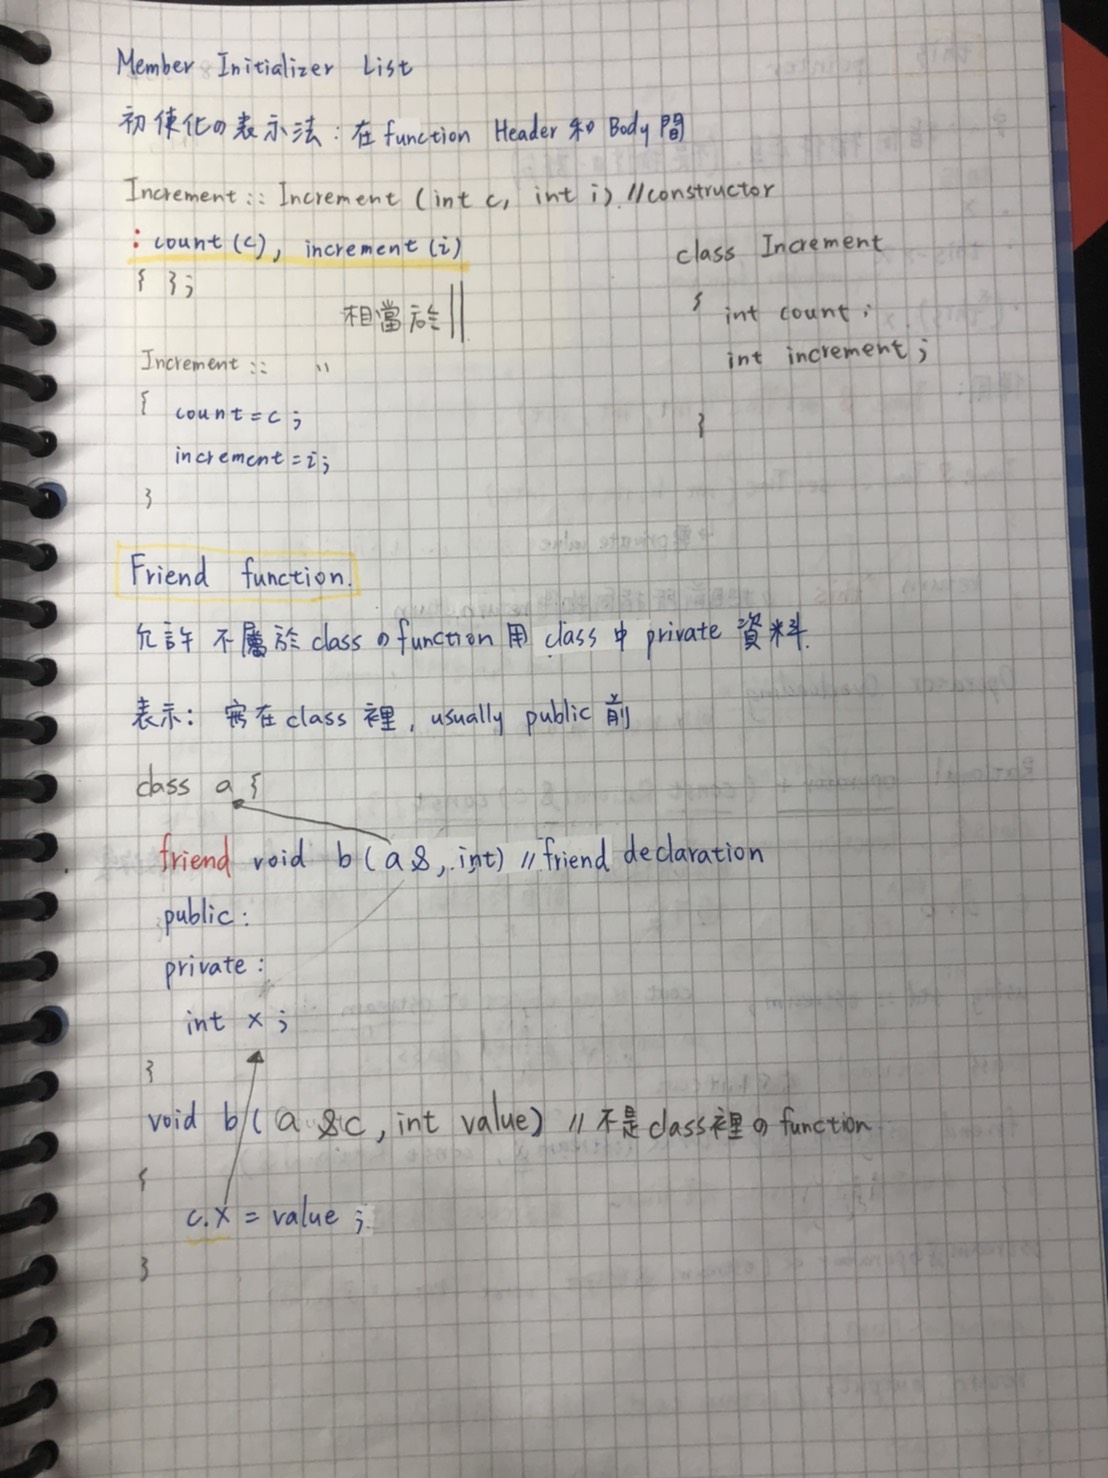 Member Initializer List
初使化の表示法：在 function Header 和 Body 間
Increment :: Increment (int c, int i) //constructor
: count (c), increment (i)
{ };
相當於
Increment :: 〃
{ count = c ;
increment = i ;
}
class Increment
{ int count ;
int increment ;
}
Friend function.
允許 不屬於 class の function 用 class 中 private 資料.
表示： 寫在 class 裡, usually public 前
class a {
friend void b ( a &, int) // friend declaration
public :
private :
int x ;
}
void b ( a &c , int value) // 不是 class 裡の function
{
c.x = value ;
}